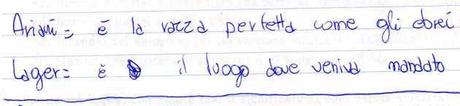 Ariani = é la razza perfetta come gli ebrei
Lager = è il luogo dove veniva mandato